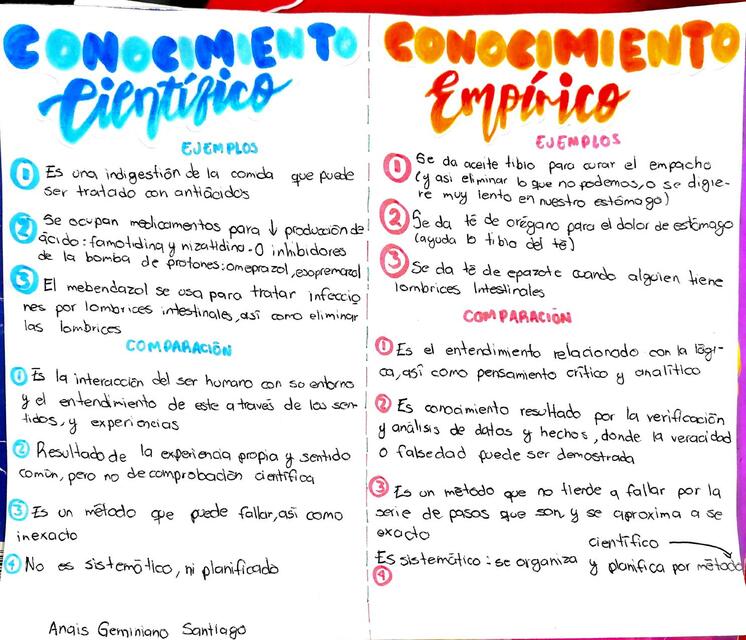 CONOCIMIENTO
Científico
EJEMPLOS
1 Es una indigestión de la comida que puede
ser tratado con antiácidos
2 Se ocupan medicamentos para ↓ producción de
ácido: famotidina y nizatidina. O inhibidores
de la bomba de protones: omeprazol, esopremazol
3 El mebendazol se usa para tratar infeccio
nes por lombrices intestinales, así como eliminar
las lombrices
COMPARACIÓN
1 Es la interacción del ser humano con so entorno
y el entendimiento de este a través de los sen-
tidos, y experiencias
2 Resultado de la experiencia propia y sentido
común, pero no de comprobación científica
3 Es un método que puede fallar, así como
inexacto
4 No es sistemático, ni planificado
Anais Geminiano Santiago
CONOCIMIENTO
Empírico
EJEMPLOS
1 Se da aceite tibio para curar el empacho
(y asi eliminar lo que no podemos, o se digie-
re muy lento en nuestro estómago)
2 Se da té de orégano para el dolor de estómago
(ayuda lo tibio del té)
3 Se da té de epazote cuando alguien tiene
lombrices Intestinales
COMPARACIÓN
1 Es el entendimiento relacionado con la lógi-
ca, así como pensamiento crítico y analítico
2 Es conocimiento resultado por la verificación
y análisis de datos y hechos, donde la veracidad
o falsedad puede ser demostrada
3 Es un método que no tiende a fallar por la
serie de pasos que son y se aproxima a se
exacto
científico
Es sistemático: se organiza y planifica por método
4